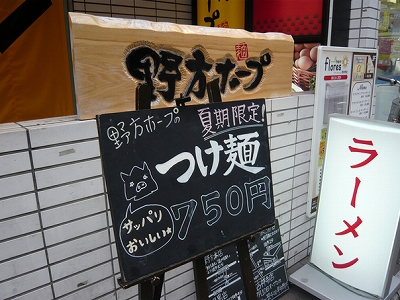 野方ホープ
野方ホープの
夏期限定!
つけ麺
750円
サッパリ
おいしい★
ラーメン
flores